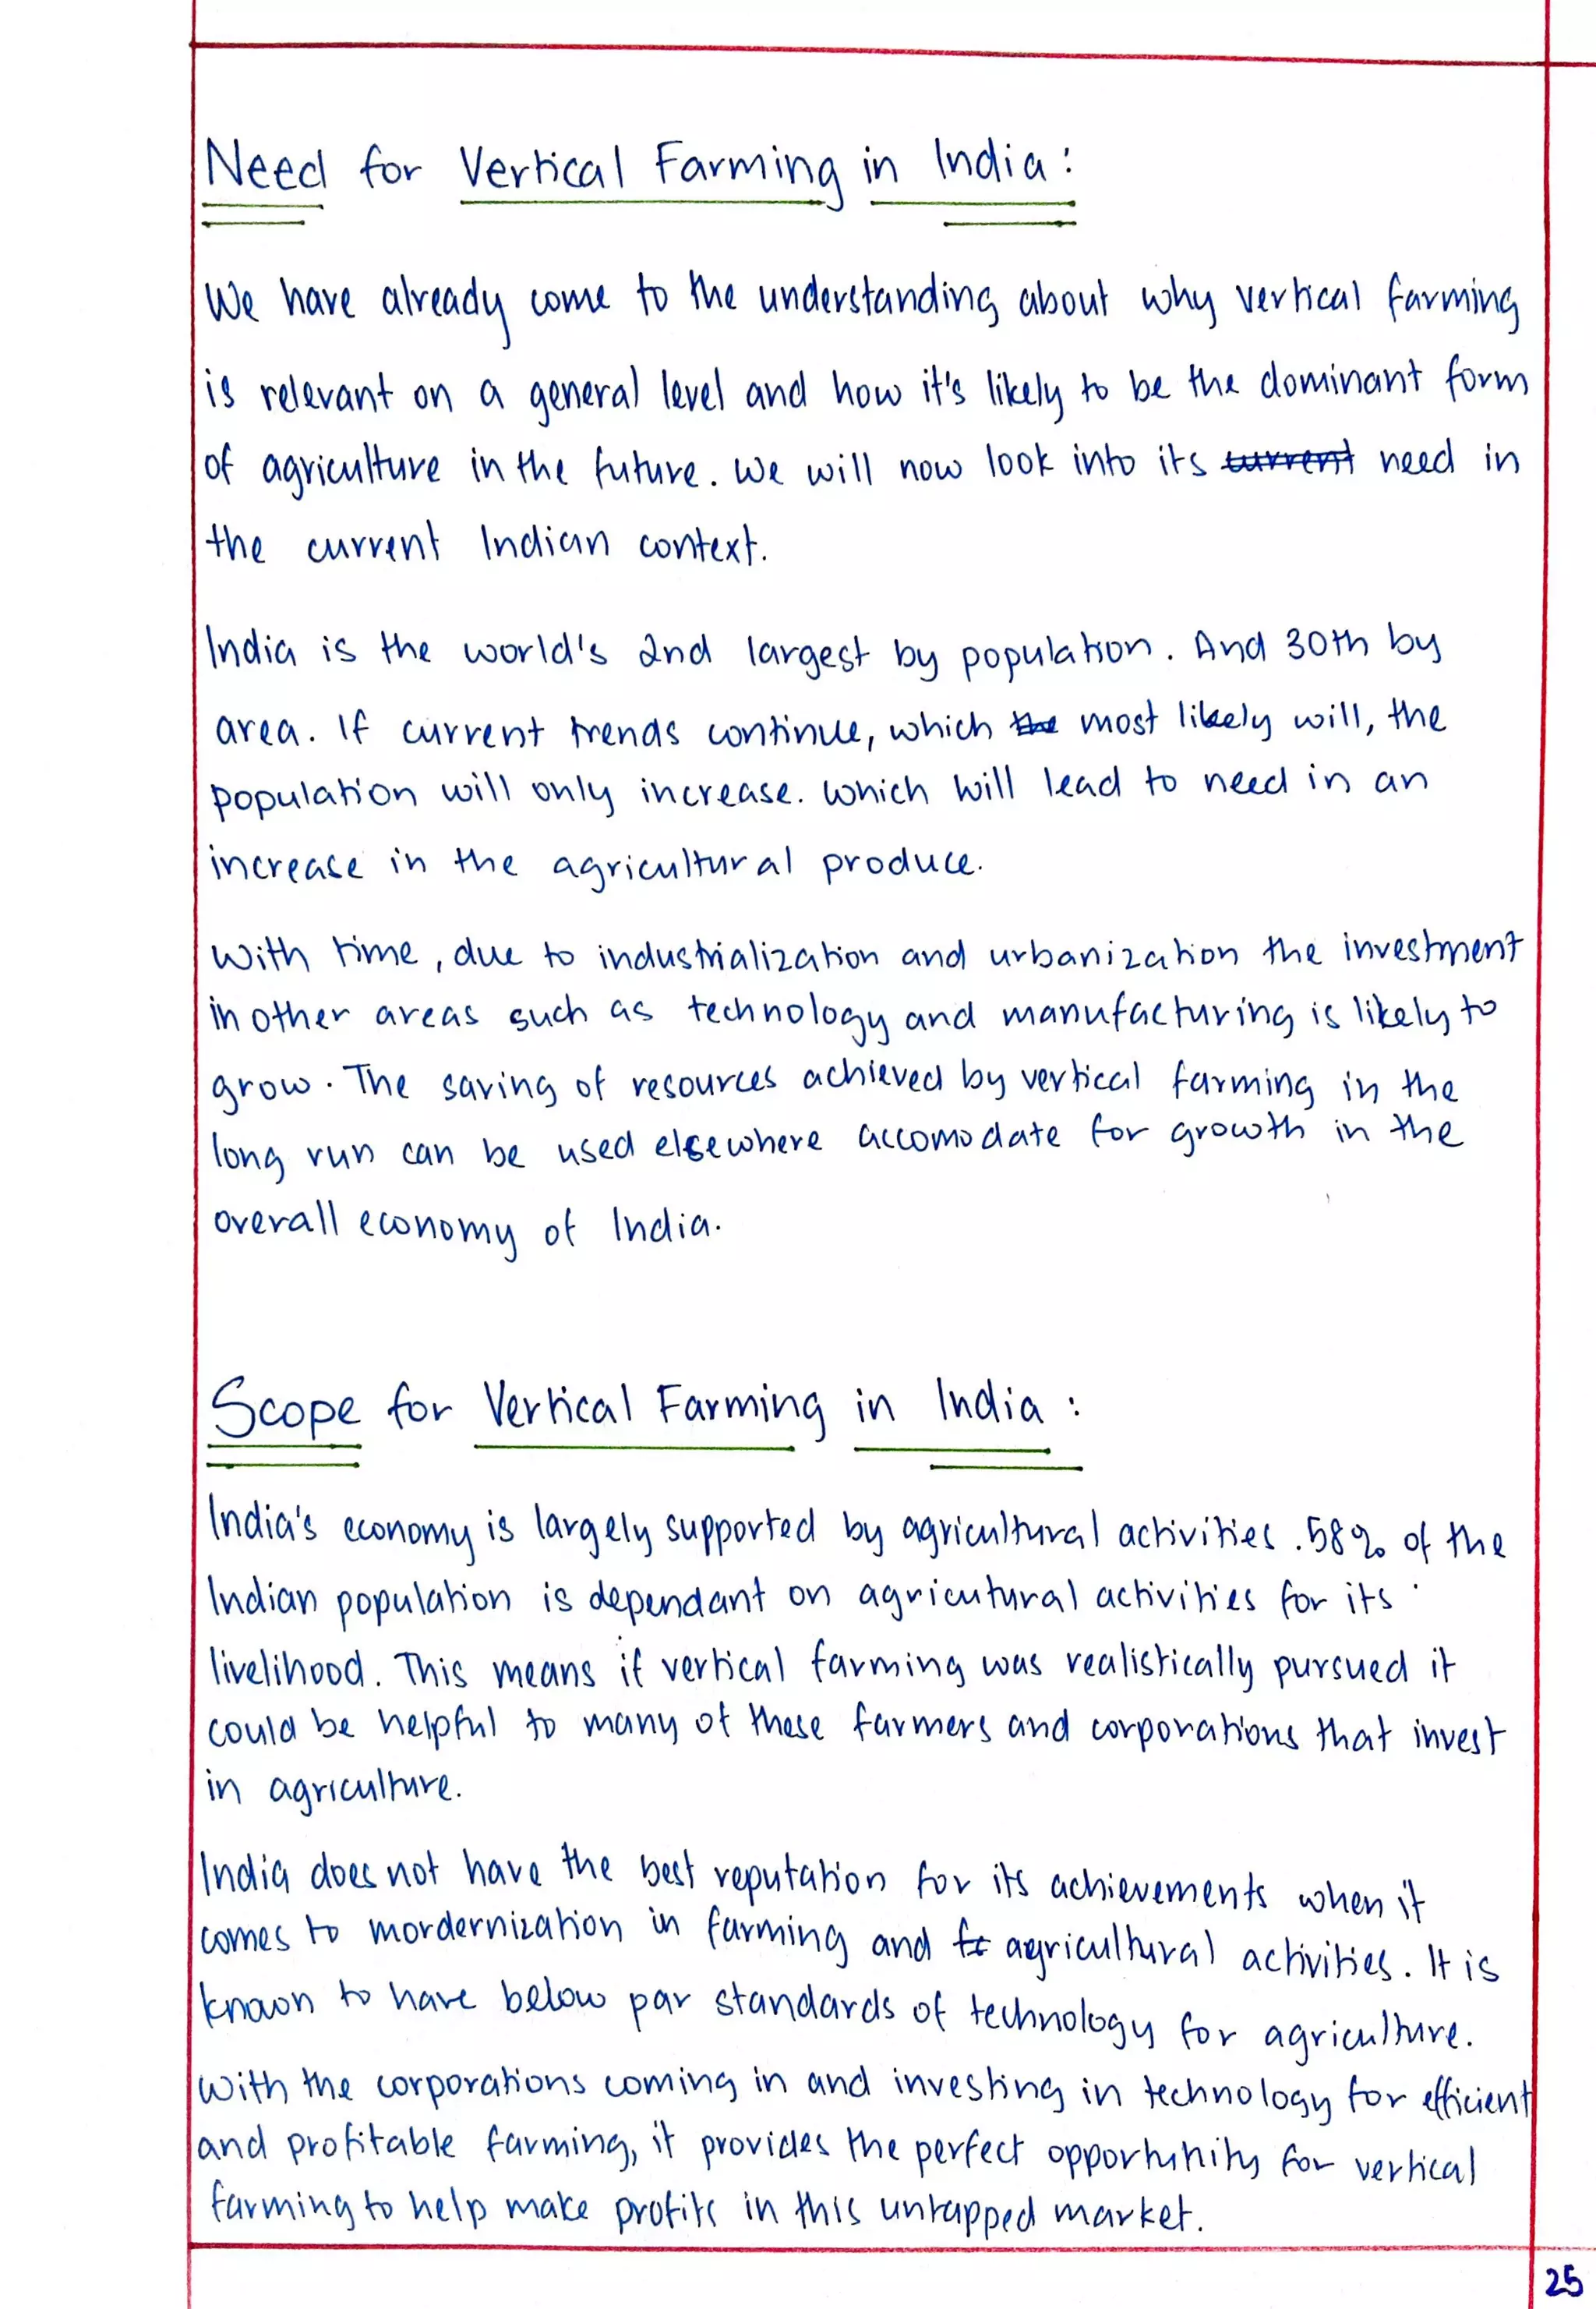 Need for Vertical Farming in India:
We have already come to the understanding about why vertical farming
is relevant on a general level and how it's likely to be the dominant form
of agriculture in the future. We will now look into its current need in
the current Indian context.
India is the world's 2nd largest by population. And 30th by
area. If current trends continue, which the most likely will, the
population will only increase. Which will lead to need in an
increase in the agricultural produce.
With time, due to industrialization and urbanization the investment
in other areas such as technology and manufacturing is likely to
grow. The saving of resources achieved by vertical farming in the
long run can be used elsewhere accomodate for growth in the
overall economy of India.
Scope for Vertical Farming in India :
India's economy is largely supported by agricultural activities. 58% of the
Indian population is dependant on agricutural activities for its
livelihood. This means if vertical farming was realistically pursued it
could be helpful to many of these farmers and corporations that invest
in agriculture.
India does not have the best reputation for its achievements when it
comes to mordernization in farming and agricultural activities. It is
known to have below par standards of technology for agriculture.
With the corporations coming in and investing in technology for efficient
and profitable farming, it provides the perfect opportunity for vertical
farming to help make profits in this untapped market.
25